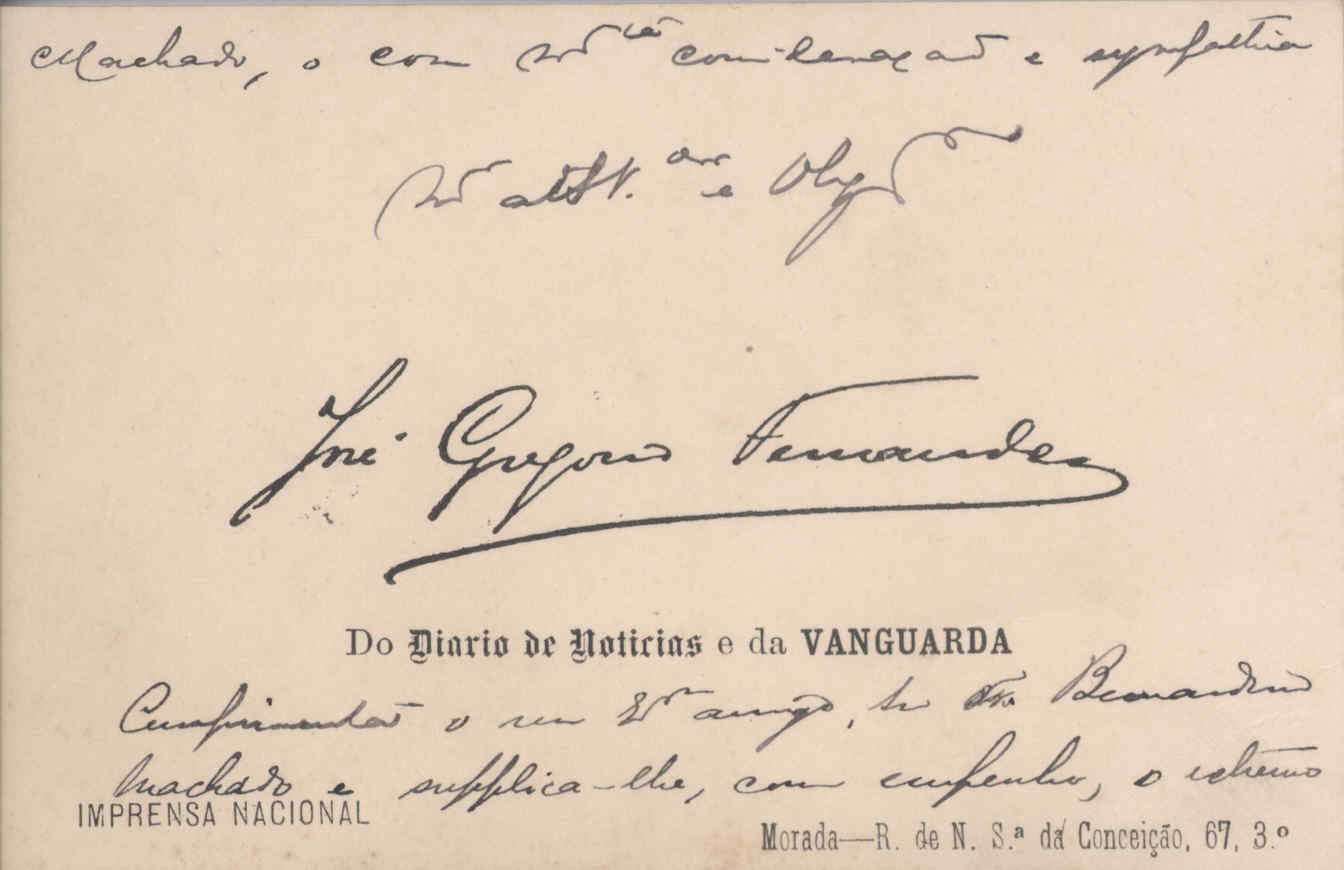 Machado, o com m.ta consideração e sympathia
att.º e
José Gregorio Fernandes
Do Diario de Noticias e da VANGUARDA
Cumprimenta o seu Ex.mo amigo, Sr. Dr. Bernardino
Machado e supplica-lhe, com empenho, o
IMPRENSA NACIONAL
Morada—R. de N. S.ª da Conceição, 67, 3.º